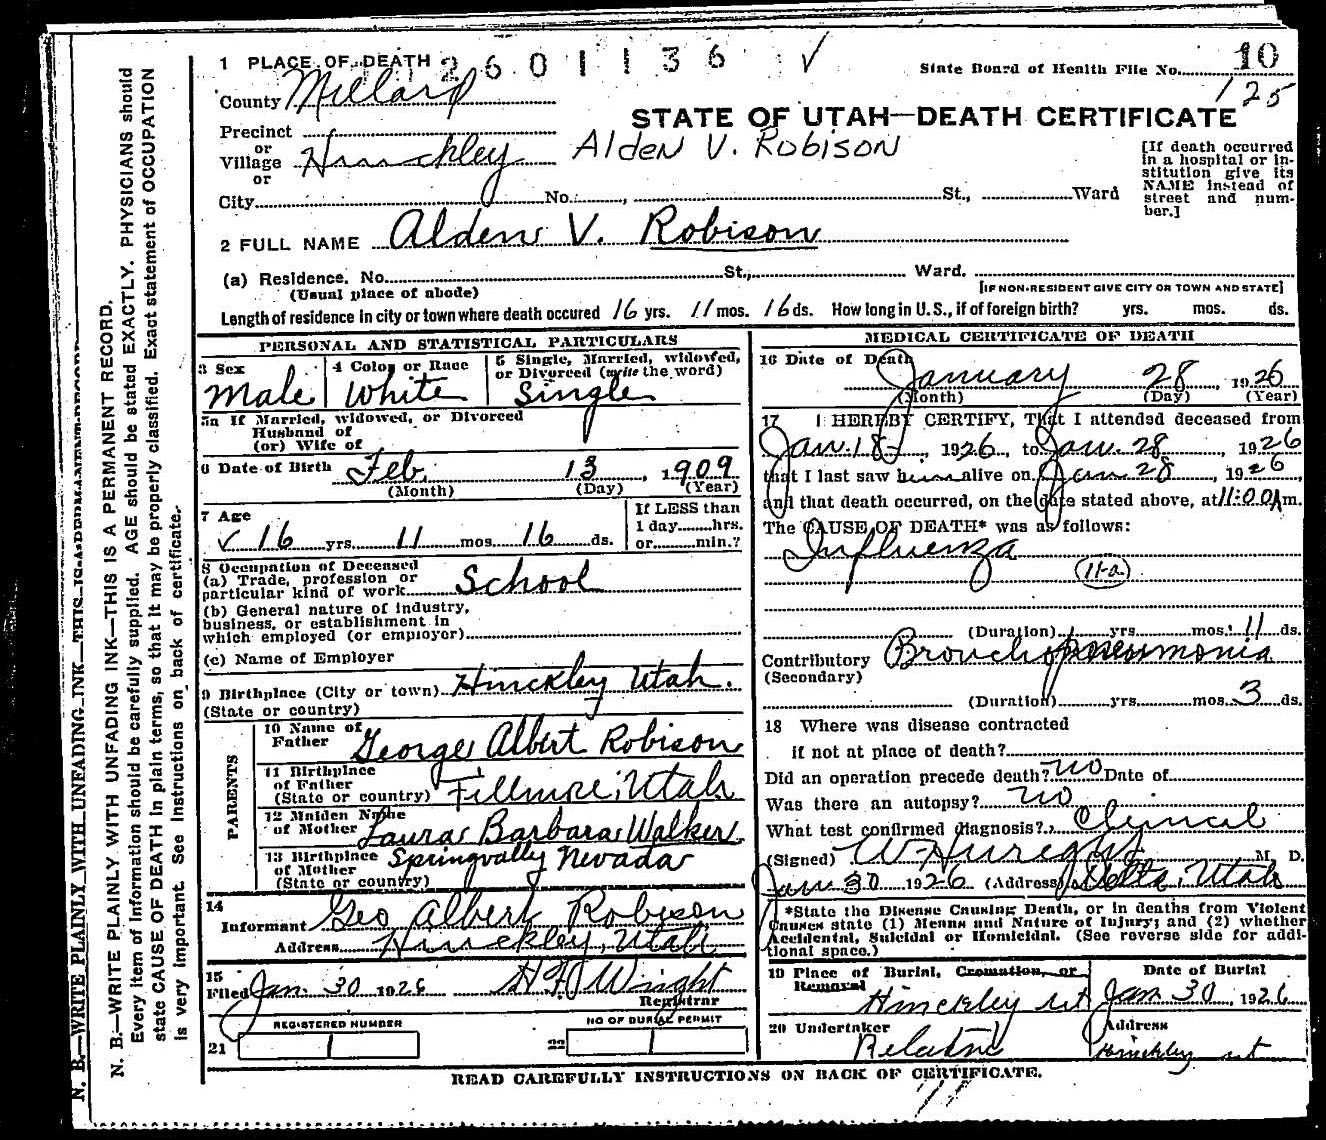 1 PLACE OF DEATH 2601136 ✓
State Board of Health File No. 10
125
County Millard
STATE OF UTAH—DEATH CERTIFICATE
Precinct
or
Village Hinckley
Alden V. Robison
or
City No. , St., Ward
[If death occurred in a hospital or in-
stitution give its
NAME instead of
street and num-
ber.]
2 FULL NAME Alden V. Robison
(a) Residence. No. St., Ward.
(Usual place of abode) [IF NON-RESIDENT GIVE CITY OR TOWN AND STATE]
Length of residence in city or town where death occured 16 yrs. 11 mos. 16 ds. How long in U.S., if of foreign birth? yrs. mos. ds.
PERSONAL AND STATISTICAL PARTICULARS
3 Sex
Male
4 Color or Race
White
5 Single, Married, widowed,
or Divorced (write the word)
Single
5a If Married, widowed, or Divorced
Husband of
(or) Wife of
6 Date of Birth Feb. 13, 1909
(Month) (Day) (Year)
7 Age
✓ 16 yrs. 11 mos. 16 ds.
If LESS than
1 day hrs.
or min.?
8 Occupation of Deceased
(a) Trade, profession or
particular kind of work School
(b) General nature of industry,
business, or establishment in
which employed (or employer)
(c) Name of Employer
9 Birthplace (City or town) Hinckley Utah.
(State or country)
PARENTS
10 Name of
Father George Albert Robison
11 Birthplace
of Father
(State or country) Fillmore, Utah
12 Maiden Name
of Mother Laura Barbara Walker
13 Birthplace
of Mother Springvally Nevada
(State or country)
14
Informant Geo Albert Robison
Address Hinckley, Utah
15
Filed Jan. 30 1926 Wright
Registrar
REGISTERED NUMBER
21
NO OF BURIAL PERMIT
22
MEDICAL CERTIFICATE OF DEATH
16 Date of Death
January 28, 1926
(Month) (Day) (Year)
17 I HEREBY CERTIFY, That I attended deceased from
Jan. 18, 1926, to Jan. 28, 1926
that I last saw him alive on Jan 28, 1926
and that death occurred, on the date stated above, at 11:00 A m.
The CAUSE OF DEATH* was as follows:
Influenza
11-a
(Duration) yrs. mos. 11 ds.
Contributory Broncho pneumonia
(Secondary)
(Duration) yrs. mos. 3 ds.
18 Where was disease contracted
if not at place of death?
Did an operation precede death? no Date of
Was there an autopsy? no
What test confirmed diagnosis? Clinical
(Signed) M. D.
Jan 30 1926 (Address) Delta, Utah
*State the Disease Causing Death, or in deaths from Violent
Causes state (1) Means and Nature of Injury; and (2) whether
Accidental, Suicidal or Homicidal. (See reverse side for addi-
tional space.)
19 Place of Burial, Cremation, or
Removal
Hinckley Ut
Date of Burial
Jan 30, 1926
20 Undertaker
Address
Hinckley ut
READ CAREFULLY INSTRUCTIONS ON BACK OF CERTIFICATE.
N. B.—WRITE PLAINLY WITH UNFADING INK—THIS IS A PERMANENT RECORD
N. B.—WRITE PLAINLY WITH UNFADING INK—THIS IS A PERMANENT RECORD.
Every item of information should be carefully supplied. AGE should be stated EXACTLY. PHYSICIANS should
state CAUSE OF DEATH in plain terms, so that it may be properly classified. Exact statement of OCCUPATION
is very important. See Instructions on back of certificate.